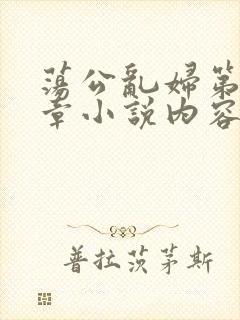 蕩公亂婦第
章小說内容
普拉茨茅斯